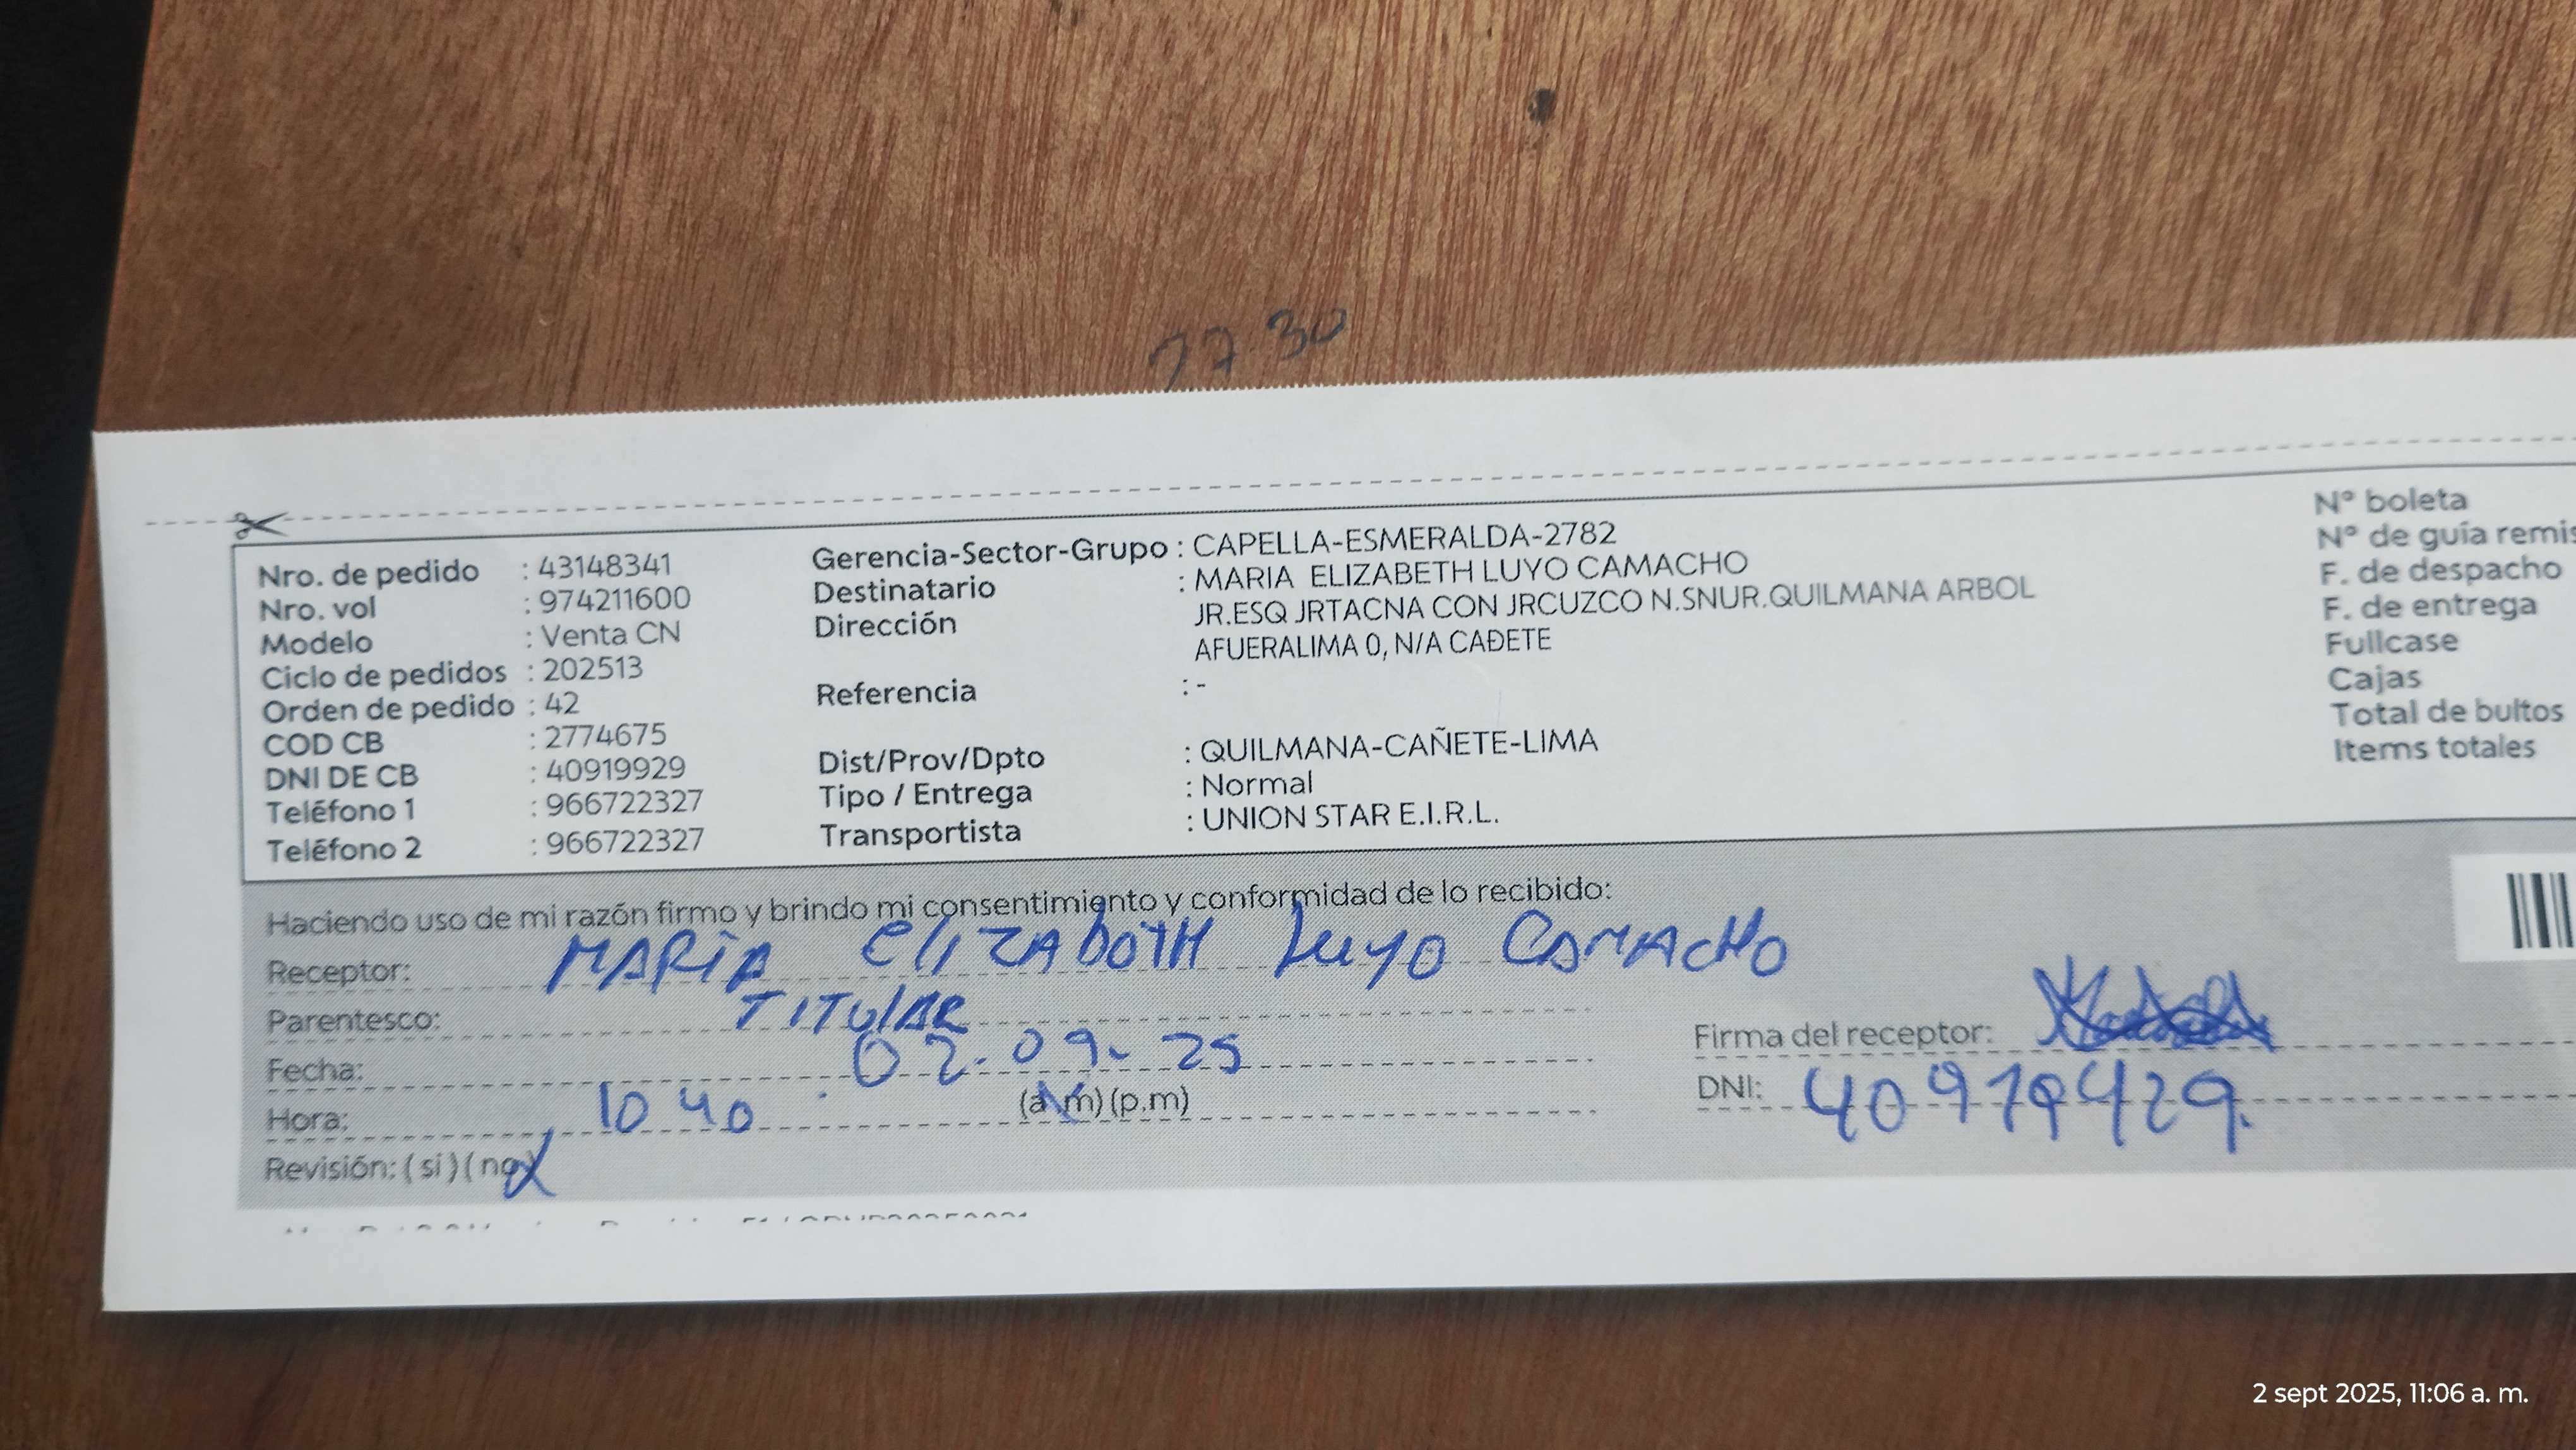 27.30
Nro. de pedido : 43148341
Nro. vol : 974211600
Modelo : Venta CN
Ciclo de pedidos : 202513
Orden de pedido : 42
COD CB : 2774675
DNI DE CB : 40919929
Teléfono 1 : 966722327
Teléfono 2 : 966722327
Gerencia-Sector-Grupo : CAPELLA-ESMERALDA-2782
Destinatario : MARIA ELIZABETH LUYO CAMACHO
Dirección JR.ESQ JRTACNA CON JRCUZCO N.SNUR.QUILMANA ARBOL
AFUERALIMA 0, N/A CAÐETE
Referencia : -
Dist/Prov/Dpto : QUILMANA-CAÑETE-LIMA
Tipo / Entrega : Normal
Transportista : UNION STAR E.I.R.L.
N° boleta
N° de guía remis
F. de despacho
F. de entrega
Fullcase
Cajas
Total de bultos
Items totales
Haciendo uso de mi razón firmo y brindo mi consentimiento y conformidad de lo recibido:
Receptor: MARIA ElIZAbOTH Luyo CAMACHO
Parentesco: TITUlAR
Fecha: 02.09.25
Hora: 10 40 (a.m) (p.m)
Revisión: ( si ) ( no )
Firma del receptor:
DNI: 40919429.
2 sept 2025, 11:06 a. m.